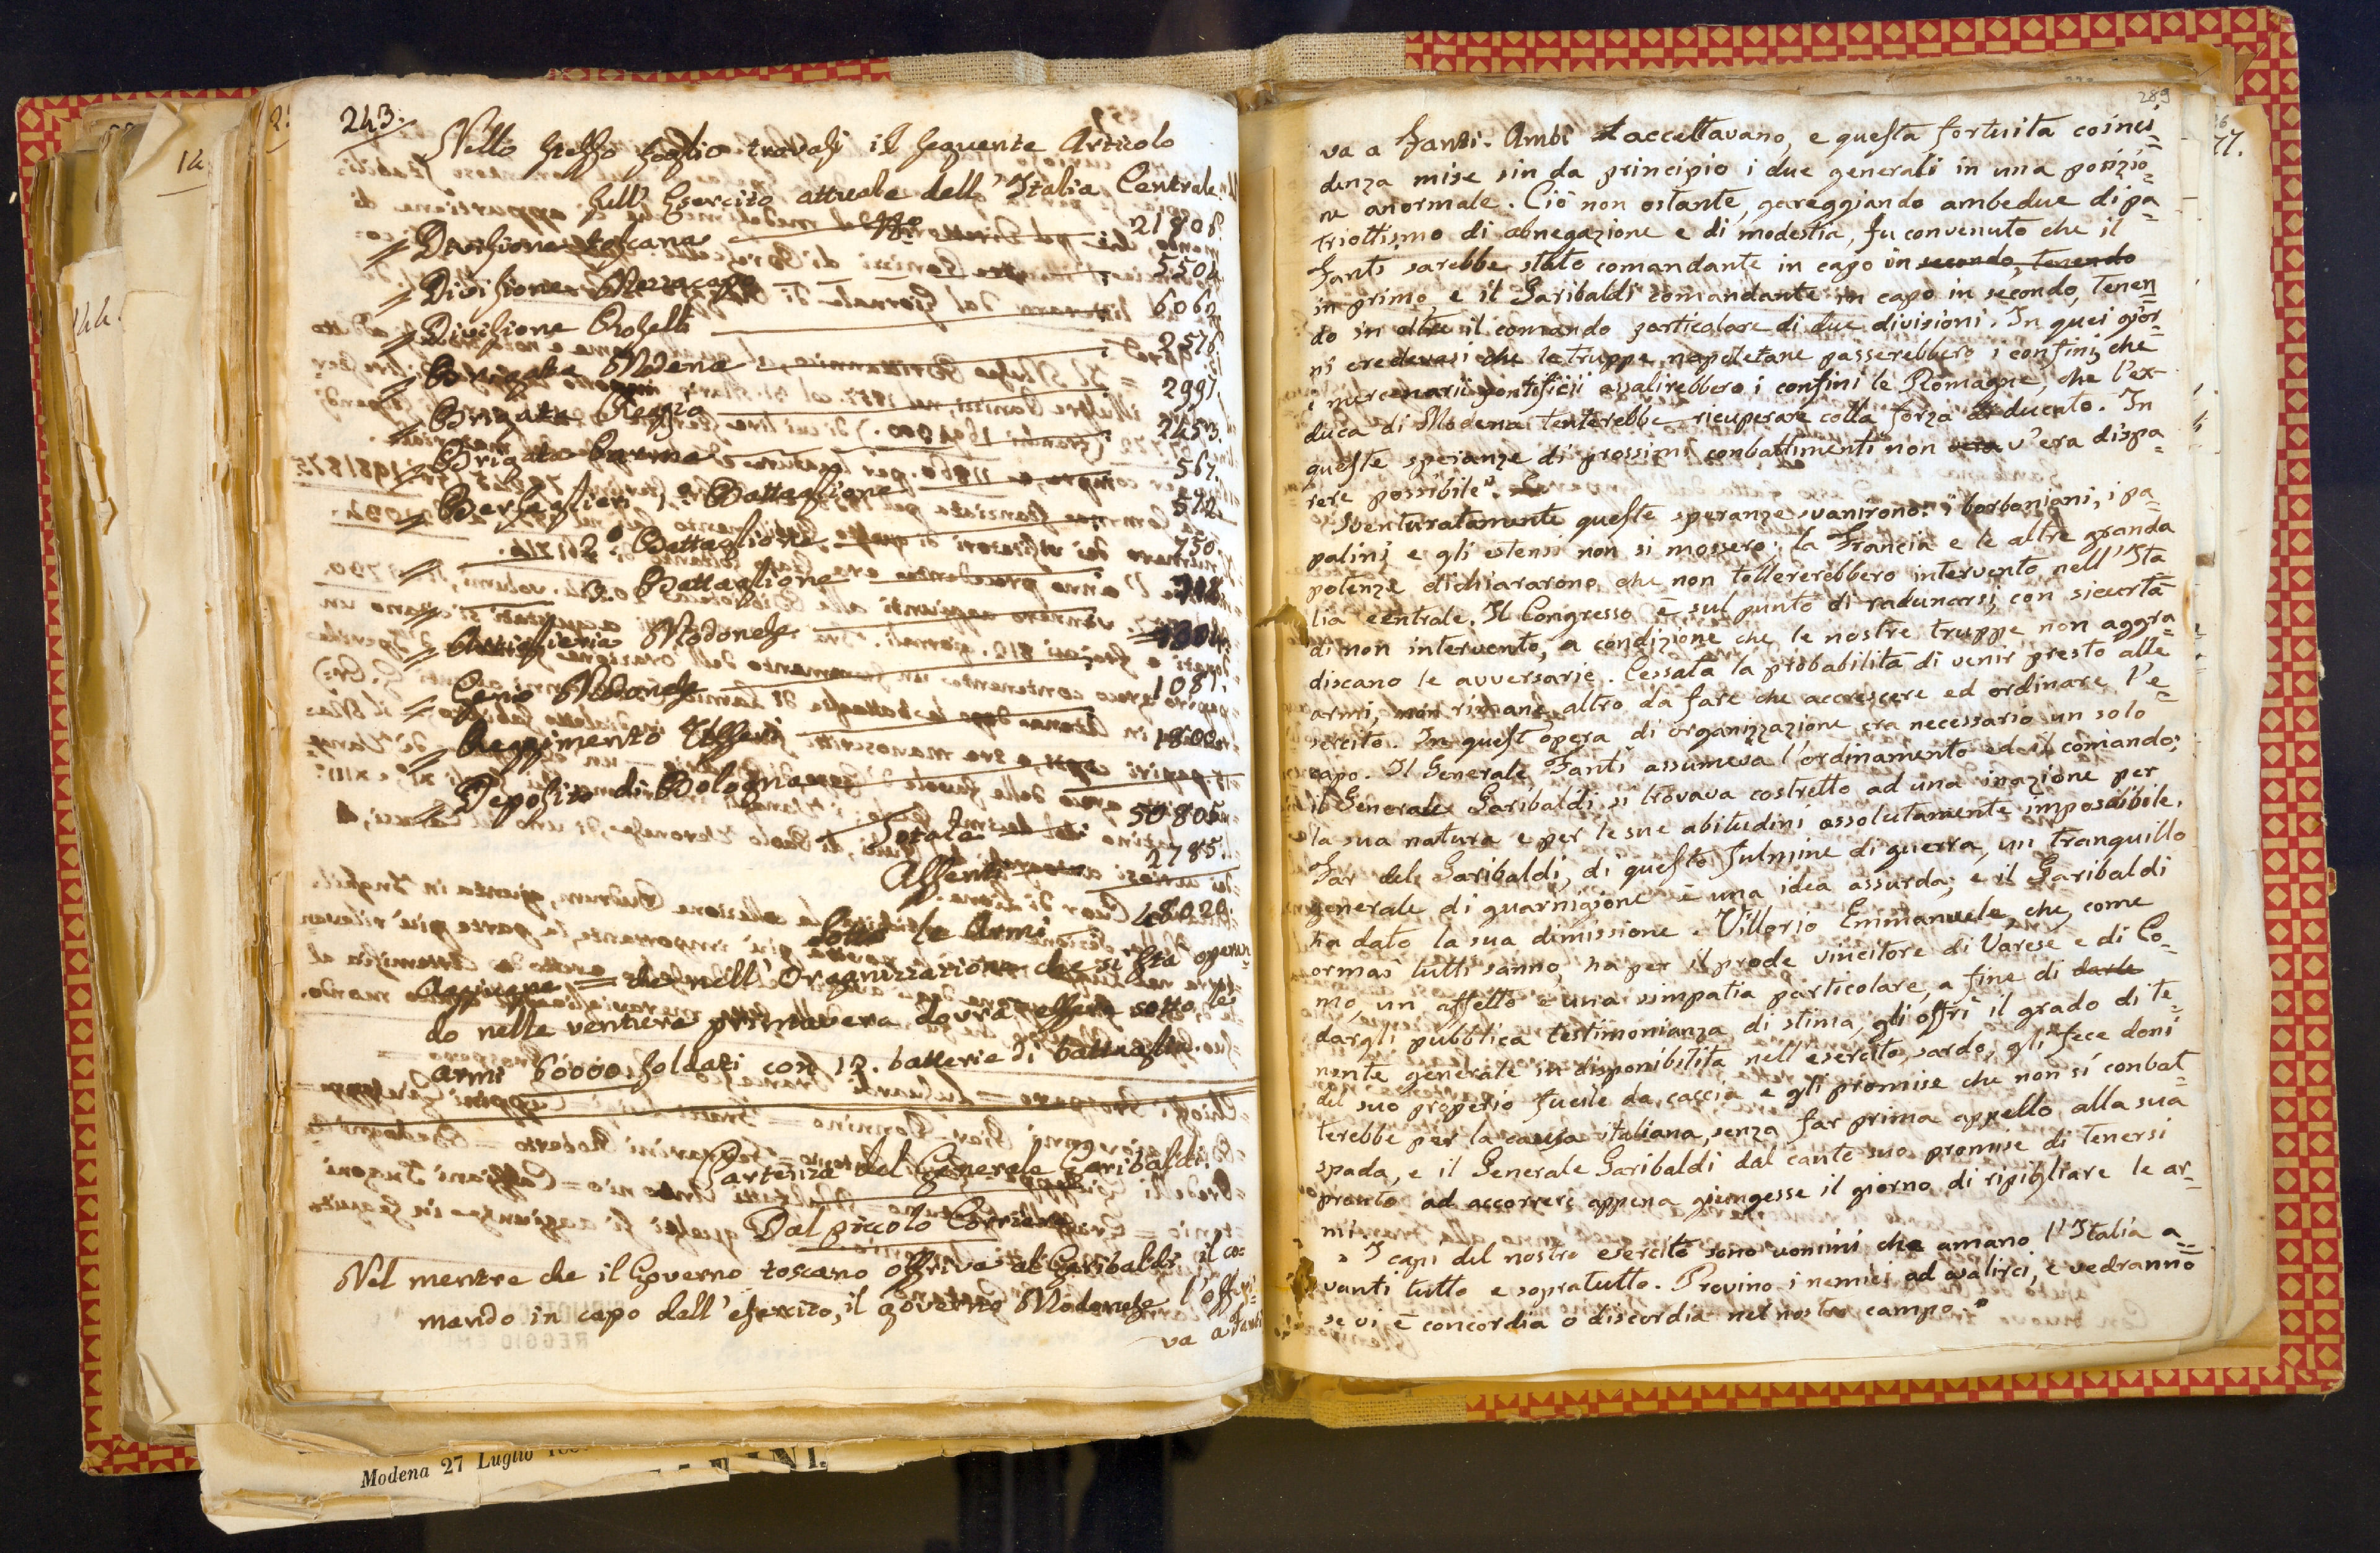 243.
Nello stesso foglio trovasi il seguente Articolo
sull' Esercito attuale dell' Italia Centrale.
Divisione toscana 21808.
Divisione Mezzacapo 5504
Divisione Roselli 6062
Brigata Modena 2576
Brigata Reggio 2991.
Brigata Parma 2453.
Bersaglieri 1.º Battaglione 567.
2º Battaglione 572.
3. Battaglione 750.
Artiglieria Modonese
Genio Modonese
Reggimento Usseri 1081.
Deposito di Bologna 1800.
Totale 50805
Assenti 2785.
Sotto le Armi 48020
Aggiugne = che nell' Organizzazione che si sta operan=
do nelle ventiera primavera dovrà essere sotto le
armi 60000 soldati con 12. batterie di battaglia.
Partenza del Generale Garibaldi.
Dal piccolo Corriere
Nel mentre che il Governo toscano offriva al Garibaldi il co=
mando in capo dell' esercito, il governo Modonese l'offri=
va a Fanti
289
va a Fanti. Ambi accettavano, e questa fortuita coinci=
denza mise sin da principio i due generali in una posizio=
ne anormale. Ciò non ostante, gareggiando ambedue di pa=
triottismo di abnegazione e di modestia, fu convenuto che il
Fanti sarebbe stato comandante in capo in secondo, tenendo
in primo e il Garibaldi comandante in capo in secondo, tenen=
do in oltre il comando particolare di due divisioni. In quei gior=
ni credevasi che le truppe napoletane passerebbero i confini, che
i mercenarii pontificii assalirebbero i confini le Romagne, che l'ex
duca di Modena tenterebbe ricuperare colla forza il ducato. In
queste speranze di prossimi conbattimenti non vera v'era dispa=
rere possibile".
Sventuratamente queste speranze svanirono: i borboniani, i pa=
palini e gli estensi non si mossero; la Francia e le altre granda
potenze dichiararono che non tollererebbero intervento nell' Ita
lia centrale. Il Congresso è sul punto di radunarsi, con sicurtà
di non intervento, a condizione che le nostre truppe non aggre=
discano le avversarie. Cessata la probabilità di venir presto alle
armi, non rimane altro da fare che accrescere ed ordinare l'e=
sercito. In quest' opera di organizzazione era necessario un solo
capo. Il Generale Fanti assumeva l'ordinamento ed il comando;
il Generale Garibaldi si trovava costretto ad una inazione per
la sua natura e per le sue abitudini assolutamente impossibile.
Far del Garibaldi, di questo fulmine di guerra, un tranquillo
generale di guarnigione è una idea assurda; e il Garibaldi
ha dato la sua dimissione. Vittorio Emmanuele, che, come
ormai tutti sanno, ha per il prode vincitore di Varese e di Co=
mo, un affetto e una simpatia particolare, a fine di darle
dargli pubblica testimonianza di stima, gli offrì il grado di te=
nente generale in disponibilità nell' esercito sardo, gli fece doni
del suo proprio fucile da caccia e gli promise che non si conbat=
terebbe per la causa italiana, senza far prima appello alla sua
spada, e il Generale Garibaldi dal cante suo promise di tenersi
pronto ad accorrere appena giungesse il giorno di ripigliare le ar=
mi.
" I capi del nostro esercito sono uomini che amano l'Italia a=
vanti tutto e sopratutto. Provino i nemici ad assalirci, e vedranno
se vi è concordia o discordia nel nostro campo."
Modena 27 Luglio